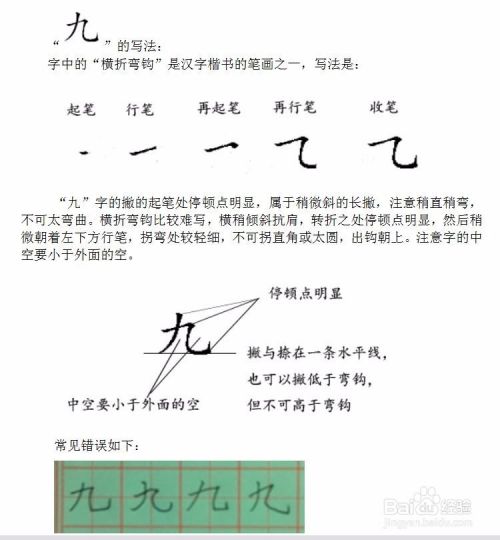 “九”的写法：
字中的“横折弯钩”是汉字楷书的笔画之一，写法是：
起笔 行笔 再起笔 再行笔 收笔
“九”字的撇的起笔处停顿点明显，属于稍微斜的长撇，注意稍直稍弯，
不可太弯曲。横折弯钩比较难写，横稍倾斜抗肩，转折之处停顿点明显，然后稍
微朝着左下方行笔，拐弯处较轻细，不可拐直角或太圆，出钩朝上。注意字的中
空要小于外面的空。
停顿点明显
九
撇与捺在一条水平线，
也可以撇低于弯钩，
中空要小于外面的空 但不可高于弯钩
常见错误如下：
九 九 九 九
Baidu经验
jingyan.baidu.com